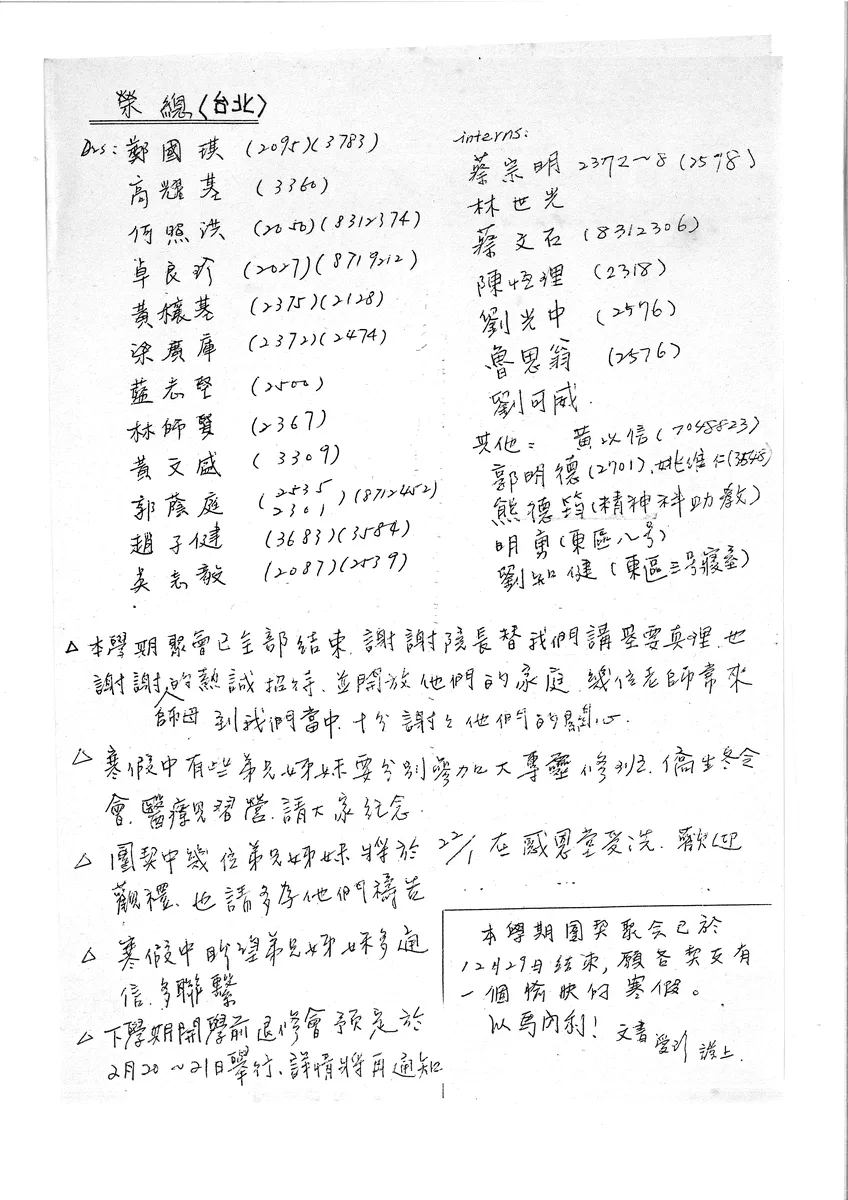 榮總(台北)
Drs: 鄭國琪 (2095)(3783)
高耀基 (3360)
何照洪 (2050)(8312374)
卓良珍 (2027)(8719212)
黃穰基 (2375)(2128)
梁廣庫 (2372)(2474)
藍志堅 (2500)
林師賢 (2367)
黃文盛 (3309)
郭蔭庭 (2535 2301)(8712452)
趙子健 (3683)(3584)
吳志毅 (2087)(2539)
interns:
蔡宗明 2372~8 (2598)
林世光
蔡文石 (8312306)
陳恆理 (2318)
劉光中 (2576)
魯思翁 (2576)
劉可威.
其他: 黃以信(7048823)
郭明德(2701).姚維仁(3548)
熊德筠(精神科助教)
明勇(東區八号)
劉知健(東區三号寢室)
△ 本學期聚會已全部結束.謝謝院長替我們講聖要真理.也
謝謝師母的熱誠招待.並開放他們的家庭.幾位老師常來
到我們當中.十分謝謝他們的關心.
△ 寒假中有些弟兄姊妹要分別參加大專靈修班.僑生冬令
會.醫療見習營.請大家紀念.
△ 團契中幾位弟兄姊妹將於 22/1 在感恩堂受洗.歡迎
觀禮.也請多為他們禱告
△ 寒假中盼望弟兄姊妹多通
信.多聯繫
△ 下學期開學前退修會預定於
2月20~21日舉行.詳情將再通知
本學期團契聚会已於
12月29日結束,願各契友有
一個愉快的寒假。
以馬內利! 文書 愛珍 謹上.